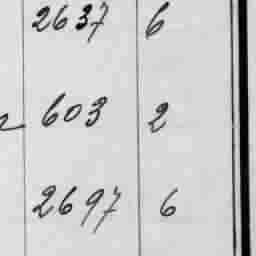 2637 6
603 2
2697 6